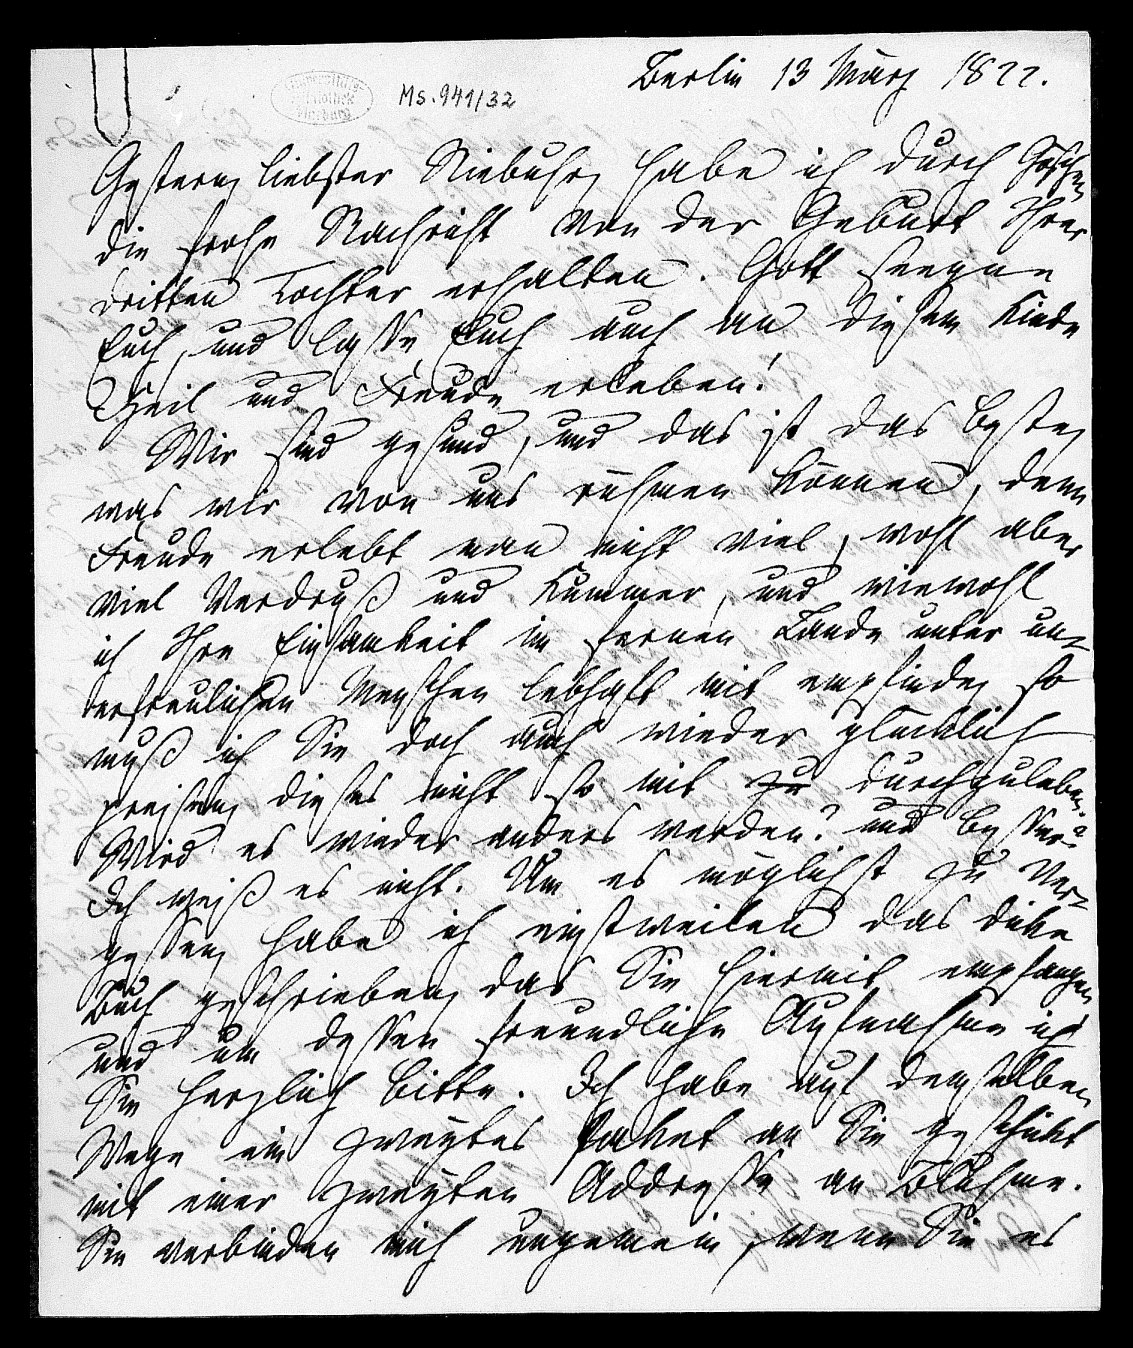 Berlin 13 März 1822.
Ms. 941/32
Gestern, liebster Niebuhr, habe ich durch Göschen
die frohe Nachricht von der Geburt Ihrer
dritten Tochter erhalten. Gott seegne
Euch, und lasse Euch auch an diesem Kinde
Heil und Freude erleben!
Wir sind gesund, und das ist das beste,
was wir von uns rühmen können, denn
Freude erlebt man nicht viel, wohl aber
viel Verdruß und Kummer, und wiewohl
ich Ihre Einsamkeit im fernen Lande unter un-
erfreulichen Menschen lebhaft mit empfinde, so
muß ich Sie doch auch wieder glücklich
preisen, dieses nicht so mit zu durchzuleben.
Wird es wieder anders werden? und besser?
Ich weiß es nicht. Um es möglichst zu ver-
gessen, habe ich einstweilen das dicke
Buch geschrieben, das Sie hiermit empfangen
und um dessen freundliche Aufnahme ich
Sie herzlich bitte. Ich habe auf demselben
Wege ein zweytes Paket an Sie geschickt
mit einer zweyten Addresse an Bluhme.
Sie verbinden mich ungemein, wenn Sie es